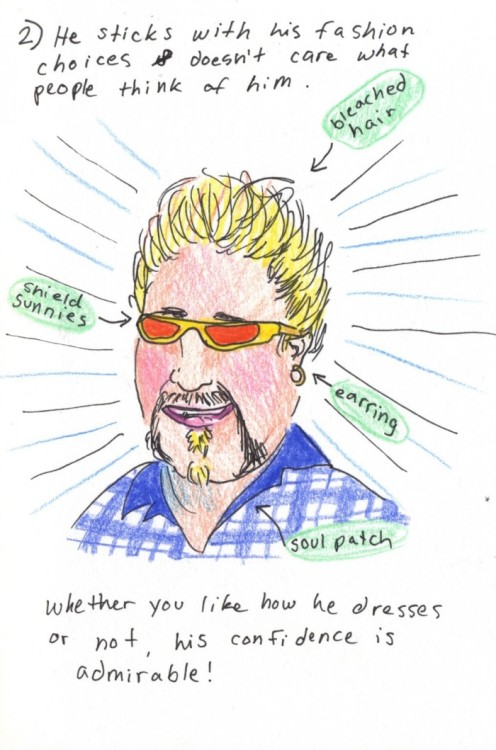 2) He sticks with his fashion
choices & doesn't care what
people think of him.
bleached
hair
shield
sunnies
earring
soul patch
Whether you like how he dresses
or not, his confidence is
admirable!